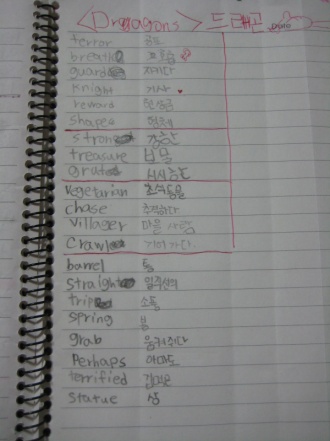 <Dragons> 드래곤
terror 공포
breath
guard 지키다
Knight 기사
reward 현상금
shapes
strong 강한
treasure 보물
vegetarian 초식동물
chase 추적하다
Villager 마을 사람
Crawl 기어가다
barrel 통
straight 일직선의
trip 소동
spring 봄
grab 움켜쥐다
Perhaps 아마도
terrified 겁먹은
statue 상